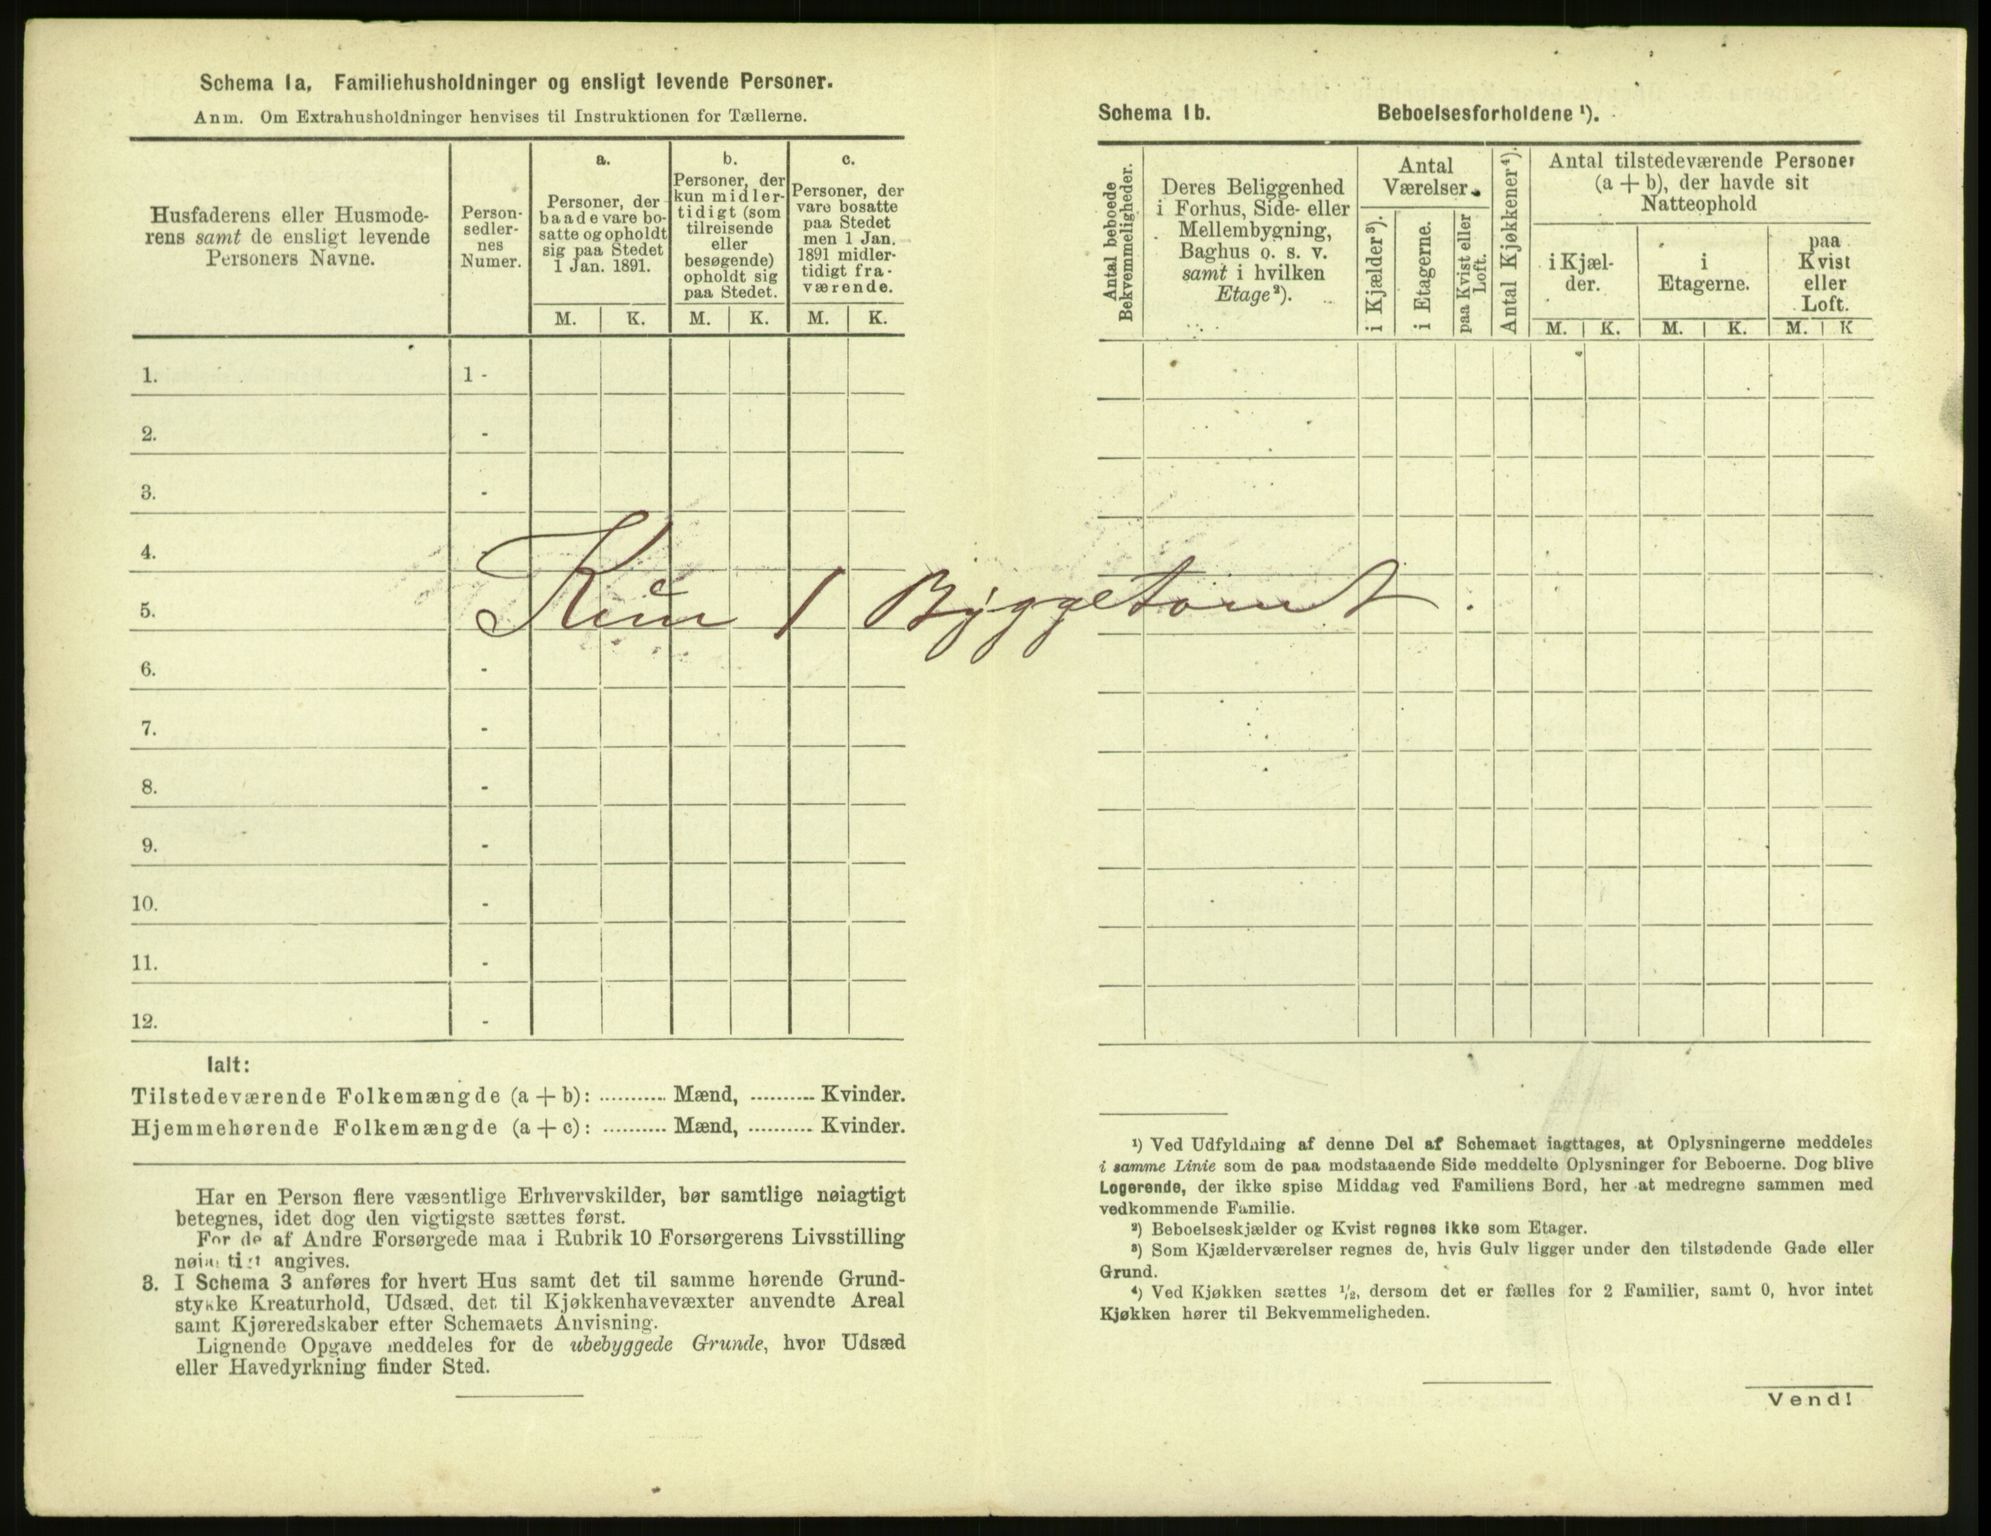 Schema 1a. Familiehusholdninger og ensligt levende Personer.
Anm. Om Extrahusholdninger henvises til Instruktionen for Tællerne.
Husfaderens eller Husmode-
rens samt de ensligt levende
Personers Navne.
Person-
sedler-
nes
Numer.
a.
Personer, der
baade vare bo-
satte og opholdt
sig paa Stedet
1 Jan. 1891.
b.
Personer, der
kun midler-
tidigt (som
tilreisende
eller
besøgende)
opholdt sig
paa Stedet.
c.
Personer, der
vare bosatte
paa Stedet
men 1 Jan.
1891 midler-
tidigt fra-
værende.
M. K. M. K. M. K.
1. 1 -
2. -
3. -
4. -
5.
Kun 1 Byggetomt.
6. -
7. -
8. -
9. -
10. -
11. -
12. -
Ialt:
Tilstedeværende Folkemængde (a + b): ........... Mænd, .......... Kvinder.
Hjemmehørende Folkemængde (a + c): .......... Mænd, .......... Kvinder.
Har en Person flere væsentlige Erhvervskilder, bør samtlige nøiagtigt
betegnes, idet dog den vigtigste sættes først.
For de af Andre Forsørgede maa i Rubrik 10 Forsørgerens Livsstilling
nøiagtigt angives.
3. I Schema 3 anføres for hvert Hus samt det til samme hørende Grund-
stykke Kreaturhold, Udsæd, det til Kjøkkenhavevæxter anvendte Areal
samt Kjøreredskaber efter Schemaets Anvisning.
Lignende Opgave meddeles for de ubebyggede Grunde, hvor Udsæd
eller Havedyrkning finder Sted.
Schema 1b. Beboelsesforholdene ¹).
Antal beboede
Bekvemmeligheder.
Deres Beliggenhed
i Forhus, Side- eller
Mellembygning,
Baghus o. s. v.
samt i hvilken
Etage²).
Antal
Værelser.
i Kjælder³).
i Etagerne.
paa Kvist eller
Loft.
Antal Kjøkkener⁴).
Antal tilstedeværende Personer
(a + b), der havde sit
Natteophold
i Kjæl-
der.
i
Etagerne.
paa
Kvist
eller
Loft.
M. K. M. K. M. K
¹) Ved Udfyldning af denne Del af Schemaet iagttages, at Oplysningerne meddeles
i samme Linie som de paa modstaaende Side meddelte Oplysninger for Beboerne. Dog blive
Logerende, der ikke spise Middag ved Familiens Bord, her at medregne sammen med
vedkommende Familie.
²) Beboelseskjælder og Kvist regnes ikke som Etager.
³) Som Kjælderværelser regnes de, hvis Gulv ligger under den tilstødende Gade eller
Grund.
⁴) Ved Kjøkken sættes ½, dersom det er fælles for 2 Familier, samt 0, hvor intet
Kjøkken hører til Bekvemmeligheden.
Vend!